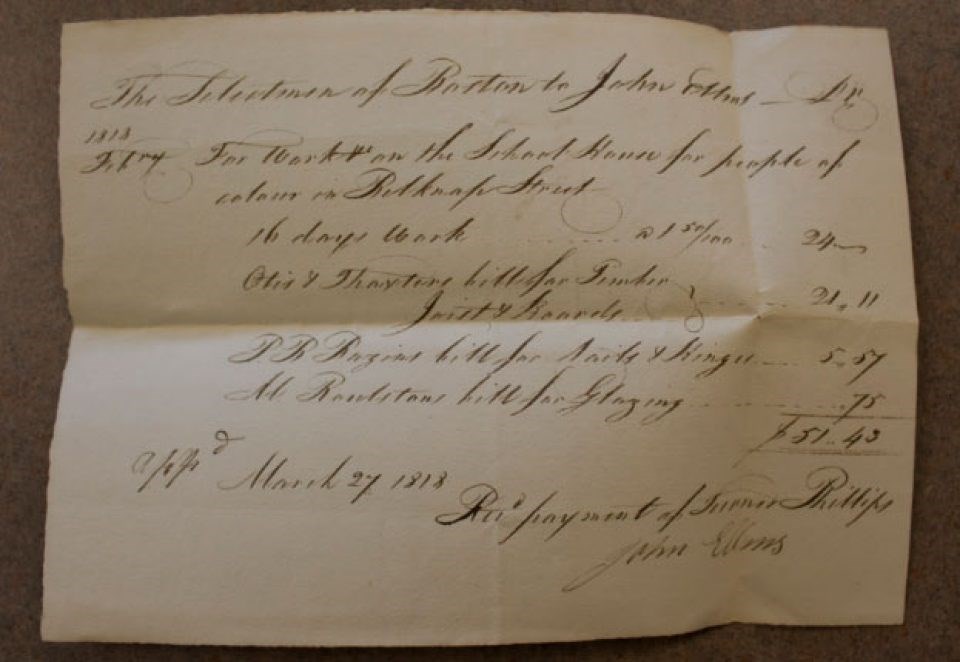 The Selectmen of Boston to John Ellms Dr.
1818
Feb.ry For Work &c on the School House for people of
colour in Belknap Street
16 days Work @ 1 50/100 24—
Otis & Thaxters bill for Timber
Joist & Boards 21.11
bill for Nails & Hinges 5.57
bill for Glazing .75
$51.43
app.d March 27 1818
Rec.d payment of Turner Phillips
John Ellms